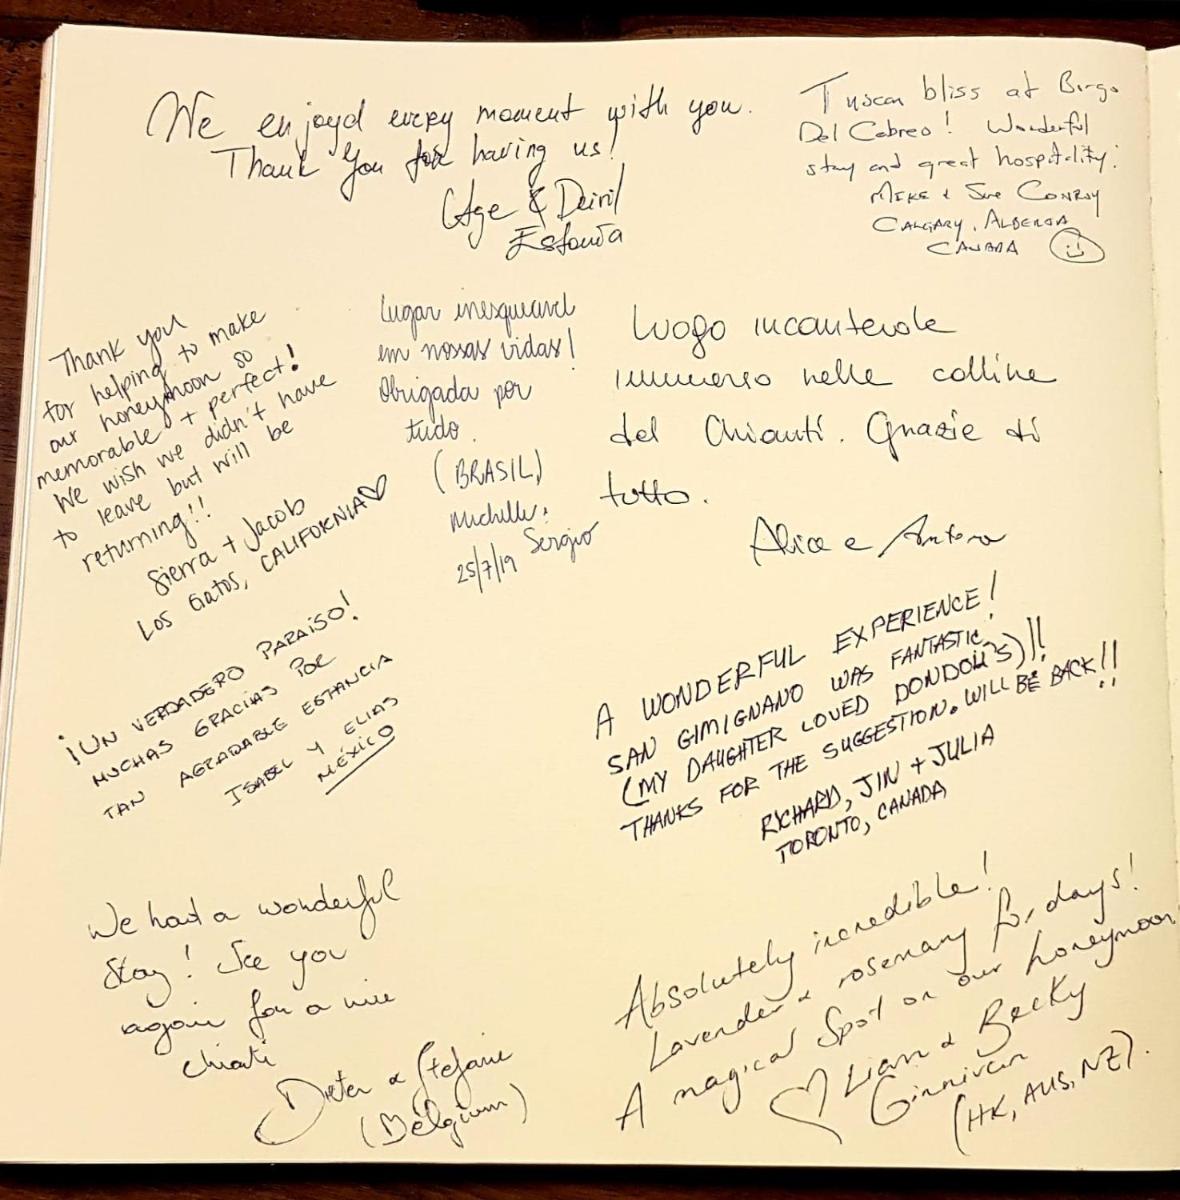 We enjoyd every moment with you.
Thank you for having us!
Age &
Tuscan bliss at Borgo
Del Cabreo! Wonderful
stay and great hospitality!
MIKE + SUE CONROY
CALGARY, ALBERTA
CANADA
Thank you
for helping to make
our honeymoon so
memorable + perfect!
We wish we didn't have
to leave but will be
returning!!
Sierra + Jacob
LOS GATOS, CALIFORNIA
Lugar inesquecível
em nossas vidas!
Obrigada por
tudo.
(BRASIL)
Michelle e
Sergio
25/7/19
Luogo incantevole
immerso nelle colline
del Chianti. Grazie di
tutto.
Alice e
¡UN VERDADERO PARAISO!
MUCHAS GRACIAS POR
TAN AGRADABLE ESTANCIA
ISABEL Y ELIAS
MÉXICO
A WONDERFUL EXPERIENCE!
SAN GIMIGNANO WAS FANTASTIC
(MY DAUGHTER LOVED DONDOLI'S)!!
THANKS FOR THE SUGGESTION. WILL BE BACK!!
RICHARD, JIN + JULIA
TORONTO, CANADA
We had a wonderful
Stay! See you
again for a nice
chianti
Dieter & Stefanie
(Belgium)
Absolutely incredible!
Lavender & rosemary for days!
A magical spot on our honeymoon
Liam & Becky
Ginnivan
(HK, AUS, NZ).